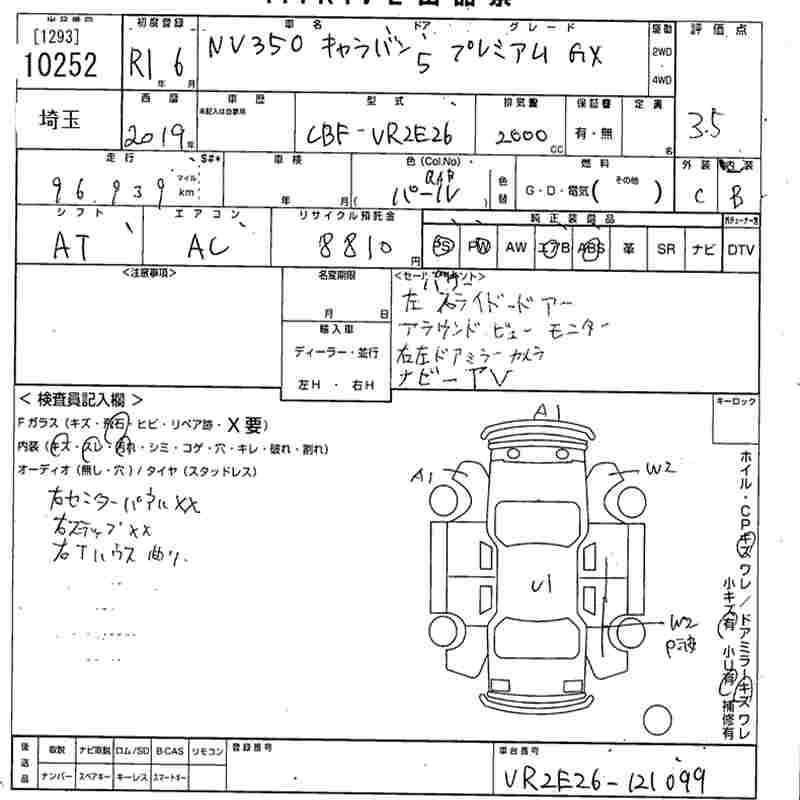 [1293]
10252
初度登録
R1 6
年 月
車名 ドア グレード
NV350 キャラバン 5 プレミアム GX
駆動
2WD
4WD
評価点
3.5
埼玉
西暦
2019年
車歴
未記入は自家用
型式
CBF-VR2E26
排気量
2000
CC
保証書
有・無
定員
名
走行 S#*
96,939
マイル
km
車検
年 月
色 (Col.No)
QAB
(パール)
色替
燃料
G・D・電気( その他 )
外装
C
内装
B
シフト
AT
エアコン
AC
リサイクル預託金
8810円
純正装備品
PS PW AW エアB ABS 革 SR ナビ DTV
<注意事項>
名変期限
月 日
輸入車
ディーラー・並行
左H ・ 右H
左右スライドドアー
アラウンドビューモニター
右左ドアミラーカメラ
ナビーTV
<検査員記入欄>
Fガラス (キズ・飛石・ヒビ・リペア跡・X要)
内装 (キズ・スレ・汚れ・シミ・コゲ・穴・キレ・破れ・割れ)
オーディオ (無し・穴) / タイヤ (スタッドレス)
右センターパネルXX
右ステップXX
右Tハウス曲り
キーロック
A1
A1
W2
U1
W2
P済
ホイル・CPキズワレ/ドアミラーキズワレ
小キズ有 小U有 補修有
後送品
取説 ナビ取説 ロム/SD B-CAS リモコン
ナンバー スペアキー キーレス スマートキー
登録番号
車台番号
VR2E26-121099